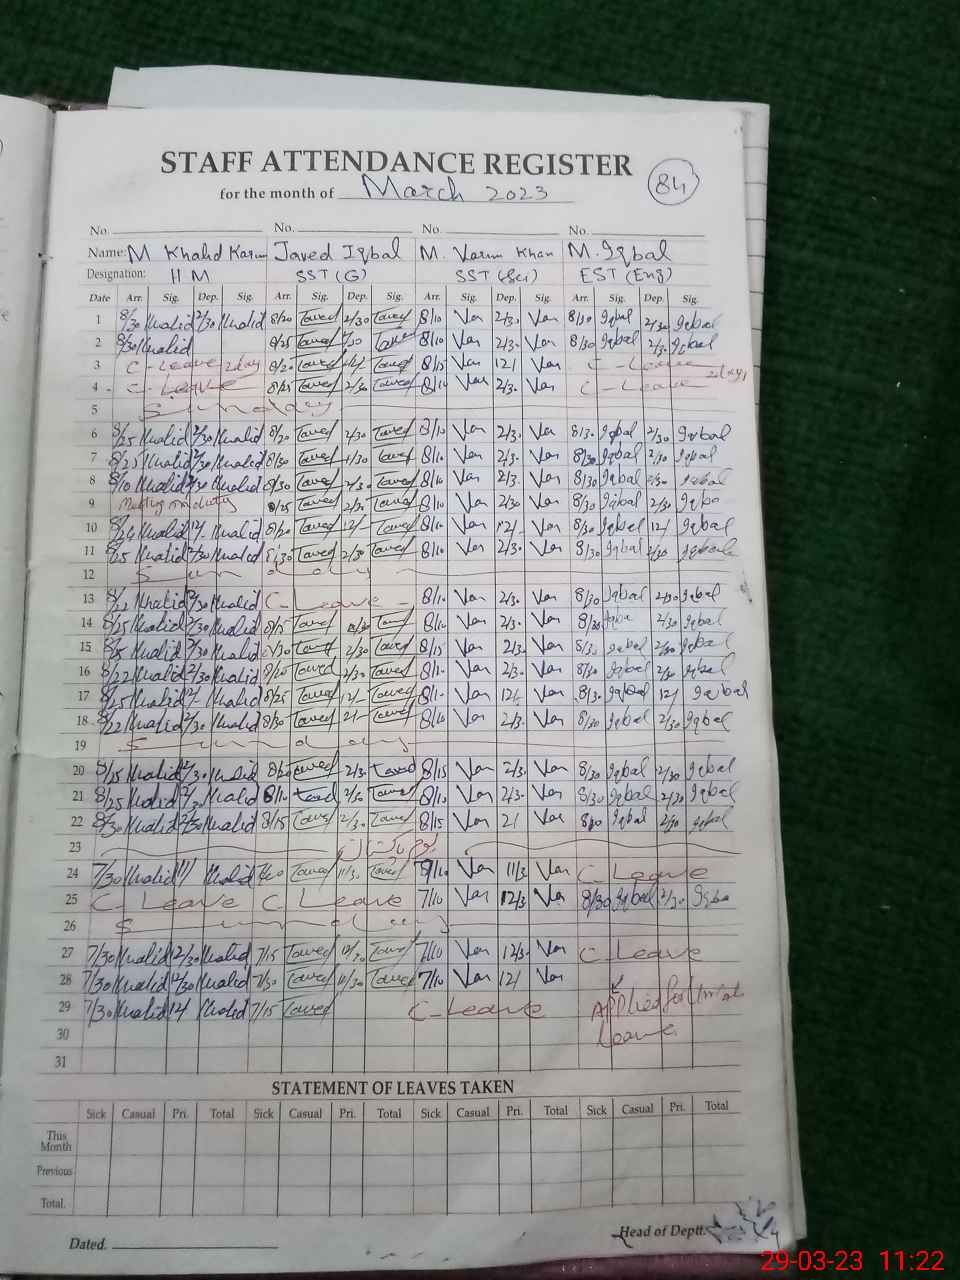 STAFF ATTENDANCE REGISTER
for the month of March 2023
84
No. No. No. No.
Name: M Khalid Karim Javed Iqbal M. Khan M. Iqbal
Designation: H M SST (G) SST (Sci) EST (Eng)
Date Arr. Sig. Dep. Sig. Arr. Sig. Dep. Sig. Arr. Sig. Dep. Sig. Arr. Sig. Dep. Sig.
1 8/30 Khalid 2/30 Khalid 8/20 Javed 2/30 Javed 8/10 Var 2/3. Var 8/30 Iqbal 2/30 Iqbal
2 8/30 Khalid 8/25 Javed Javed 8/10 Var 2/3. Var 8/30 Iqbal 2/3. Iqbal
3 C-Leave 2day 8/20 Javed Javed 8/15 Var 12/ Var C-Leave 2days
4 C-Leave 8/25 Javed 2/30 Javed 8/10 Var 2/3. Var C-Leave
5 Sunday
6 8/25 Khalid 2/30 Khalid 8/20 Javed 2/30 Javed 8/10 Var 2/3. Var 8/3. Iqbal 2/30 Iqbal
7 8/25 Khalid 2/30 Khalid 8/30 Javed Javed 8/10 Var 2/3. Var 8/30 Iqbal 2/30 Iqbal
8 8/10 Khalid 2/30 Khalid 8/30 Javed 2/30 Javed 8/10 Var 2/3. Var 8/30 Iqbal 2/30 Iqbal
9 Meeting 8/25 Javed 2/30 Javed 8/10 Var 2/30 Var 8/30 Iqbal 2/30 Iqba
10 Khalid 12/. Khalid 8/20 Javed 12/ Javed 8/10 Var 12/. Var 8/30 Iqbal 12/ Iqbal
11 8/25 Khalid 2/30 Khalid 8/30 Javed 2/30 Javed 8/10 Var 2/3. Var 8/30 Iqbal 2/30 Iqbal
12 Sunday
13 8/22 Khalid 2/30 Khalid C-Leave 8/1. Var 2/3. Var 8/30 Iqbal 2/30 Iqbal
14 8/25 Khalid 2/30 Khalid 8/15 Javed Javed 8/10 Var 2/3. Var 8/30 Iqba 2/30 Iqbal
15 Khalid 2/30 Khalid Javed 2/30 Javed 8/15 Var 2/3. Var 8/3. Iqbal 2/30 Iqbal
16 8/22 Khalid 2/30 Khalid 8/20 Javed 2/30 Javed 8/1. Var 2/3. Var 8/30 Iqbal 2/30 Iqbal
17 8/25 Khalid Khalid 8/25 Javed 12/ Javed 8/1. Var 12/. Var 8/3. Iqbal 12/ Iqbal
18 8/22 Khalid 2/30 Khalid 8/30 Javed 2/ Javed 8/10 Var 2/3. Var 8/30 Iqbal 2/30 Iqbal
19 Sunday
20 8/25 Khalid 2/30 Khalid Javed 2/3. Javed 8/15 Var 2/3. Var 8/30 Iqbal 2/30 Iqbal
21 8/25 Khalid 2/30 Khalid 8/10 Javed 2/30 Javed 8/10 Var 2/3. Var 8/30 Iqbal 2/30 Iqbal
22 8/30 Khalid 2/30 Khalid 8/15 Javed 2/3. Javed 8/15 Var 2/ Var Iqbal 2/30 Iqbal
23 یوم پاکستان
24 7/30 Khalid 11/ Khalid Javed 11/3. Javed Var 11/3. Var C-Leave
25 C-Leave C-Leave 7/10 Var 12/3. Var 8/30 Iqbal 2/30 Iqba
26 Sunday
27 7/30 Khalid 12/30 Khalid 7/15 Javed Javed 7/10 Var 12/3. Var C-Leave
28 7/30 Khalid 12/30 Khalid 7/30 Javed 12/30 Javed 7/10 Var 12/ Var
29 7/30 Khalid Khalid 7/15 Javed C-Leave Applied for Leave
30
31
STATEMENT OF LEAVES TAKEN
Sick Casual Pri. Total Sick Casual Pri. Total Sick Casual Pri. Total Sick Casual Pri. Total
This Month
Previous
Total.
Dated. Head of Deptt.
29-03-23 11:22